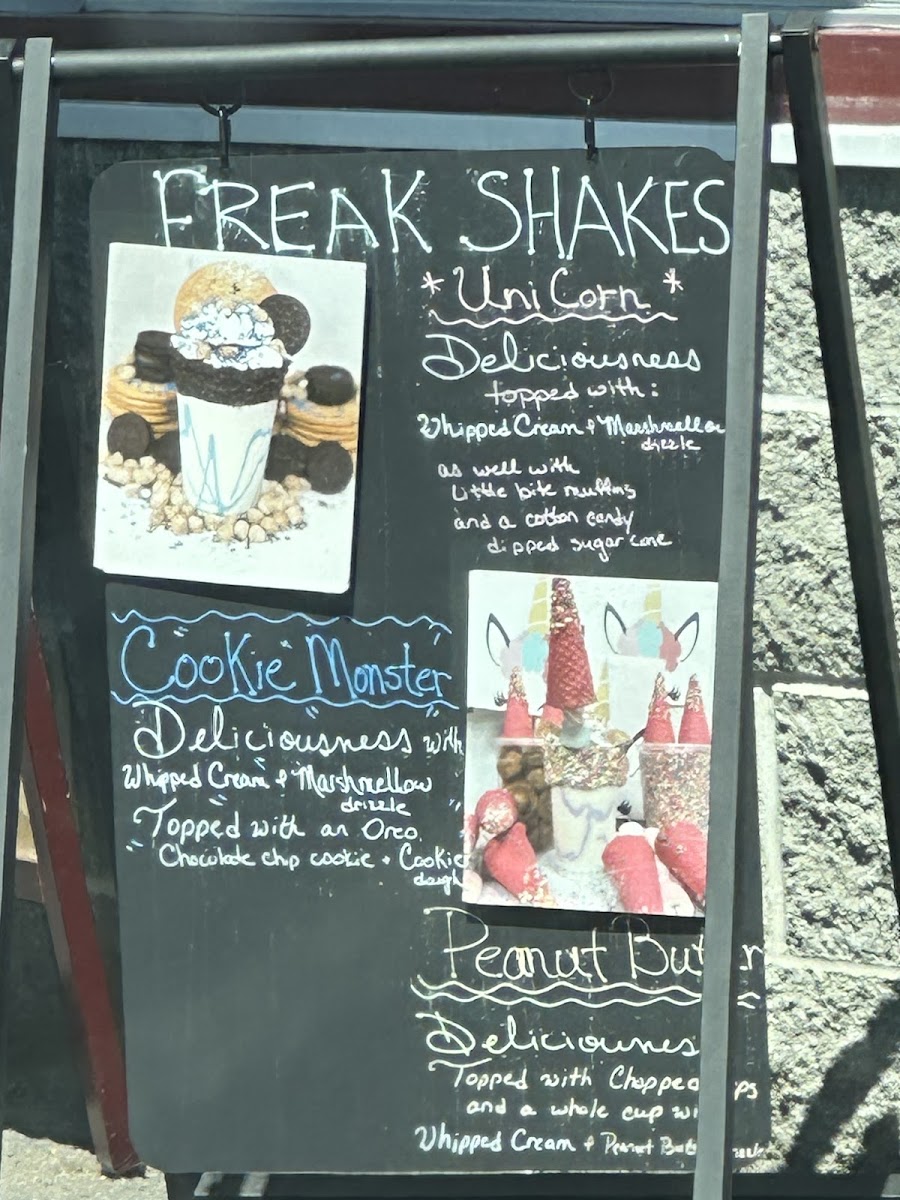 FREAK SHAKES
* UniCorn *
Deliciousness
topped with:
Whipped Cream & Marshmellow
drizzle
as well with
little bite muffins
and a cotton candy
dipped sugar cone
Cookie Monster
Deliciousness with
Whipped Cream & Marshmellow
drizzle
Topped with an Oreo
Chocolate chip cookie + Cookie
dough
Peanut
Topped with
and a whole cup
Whipped Cream & Peanut